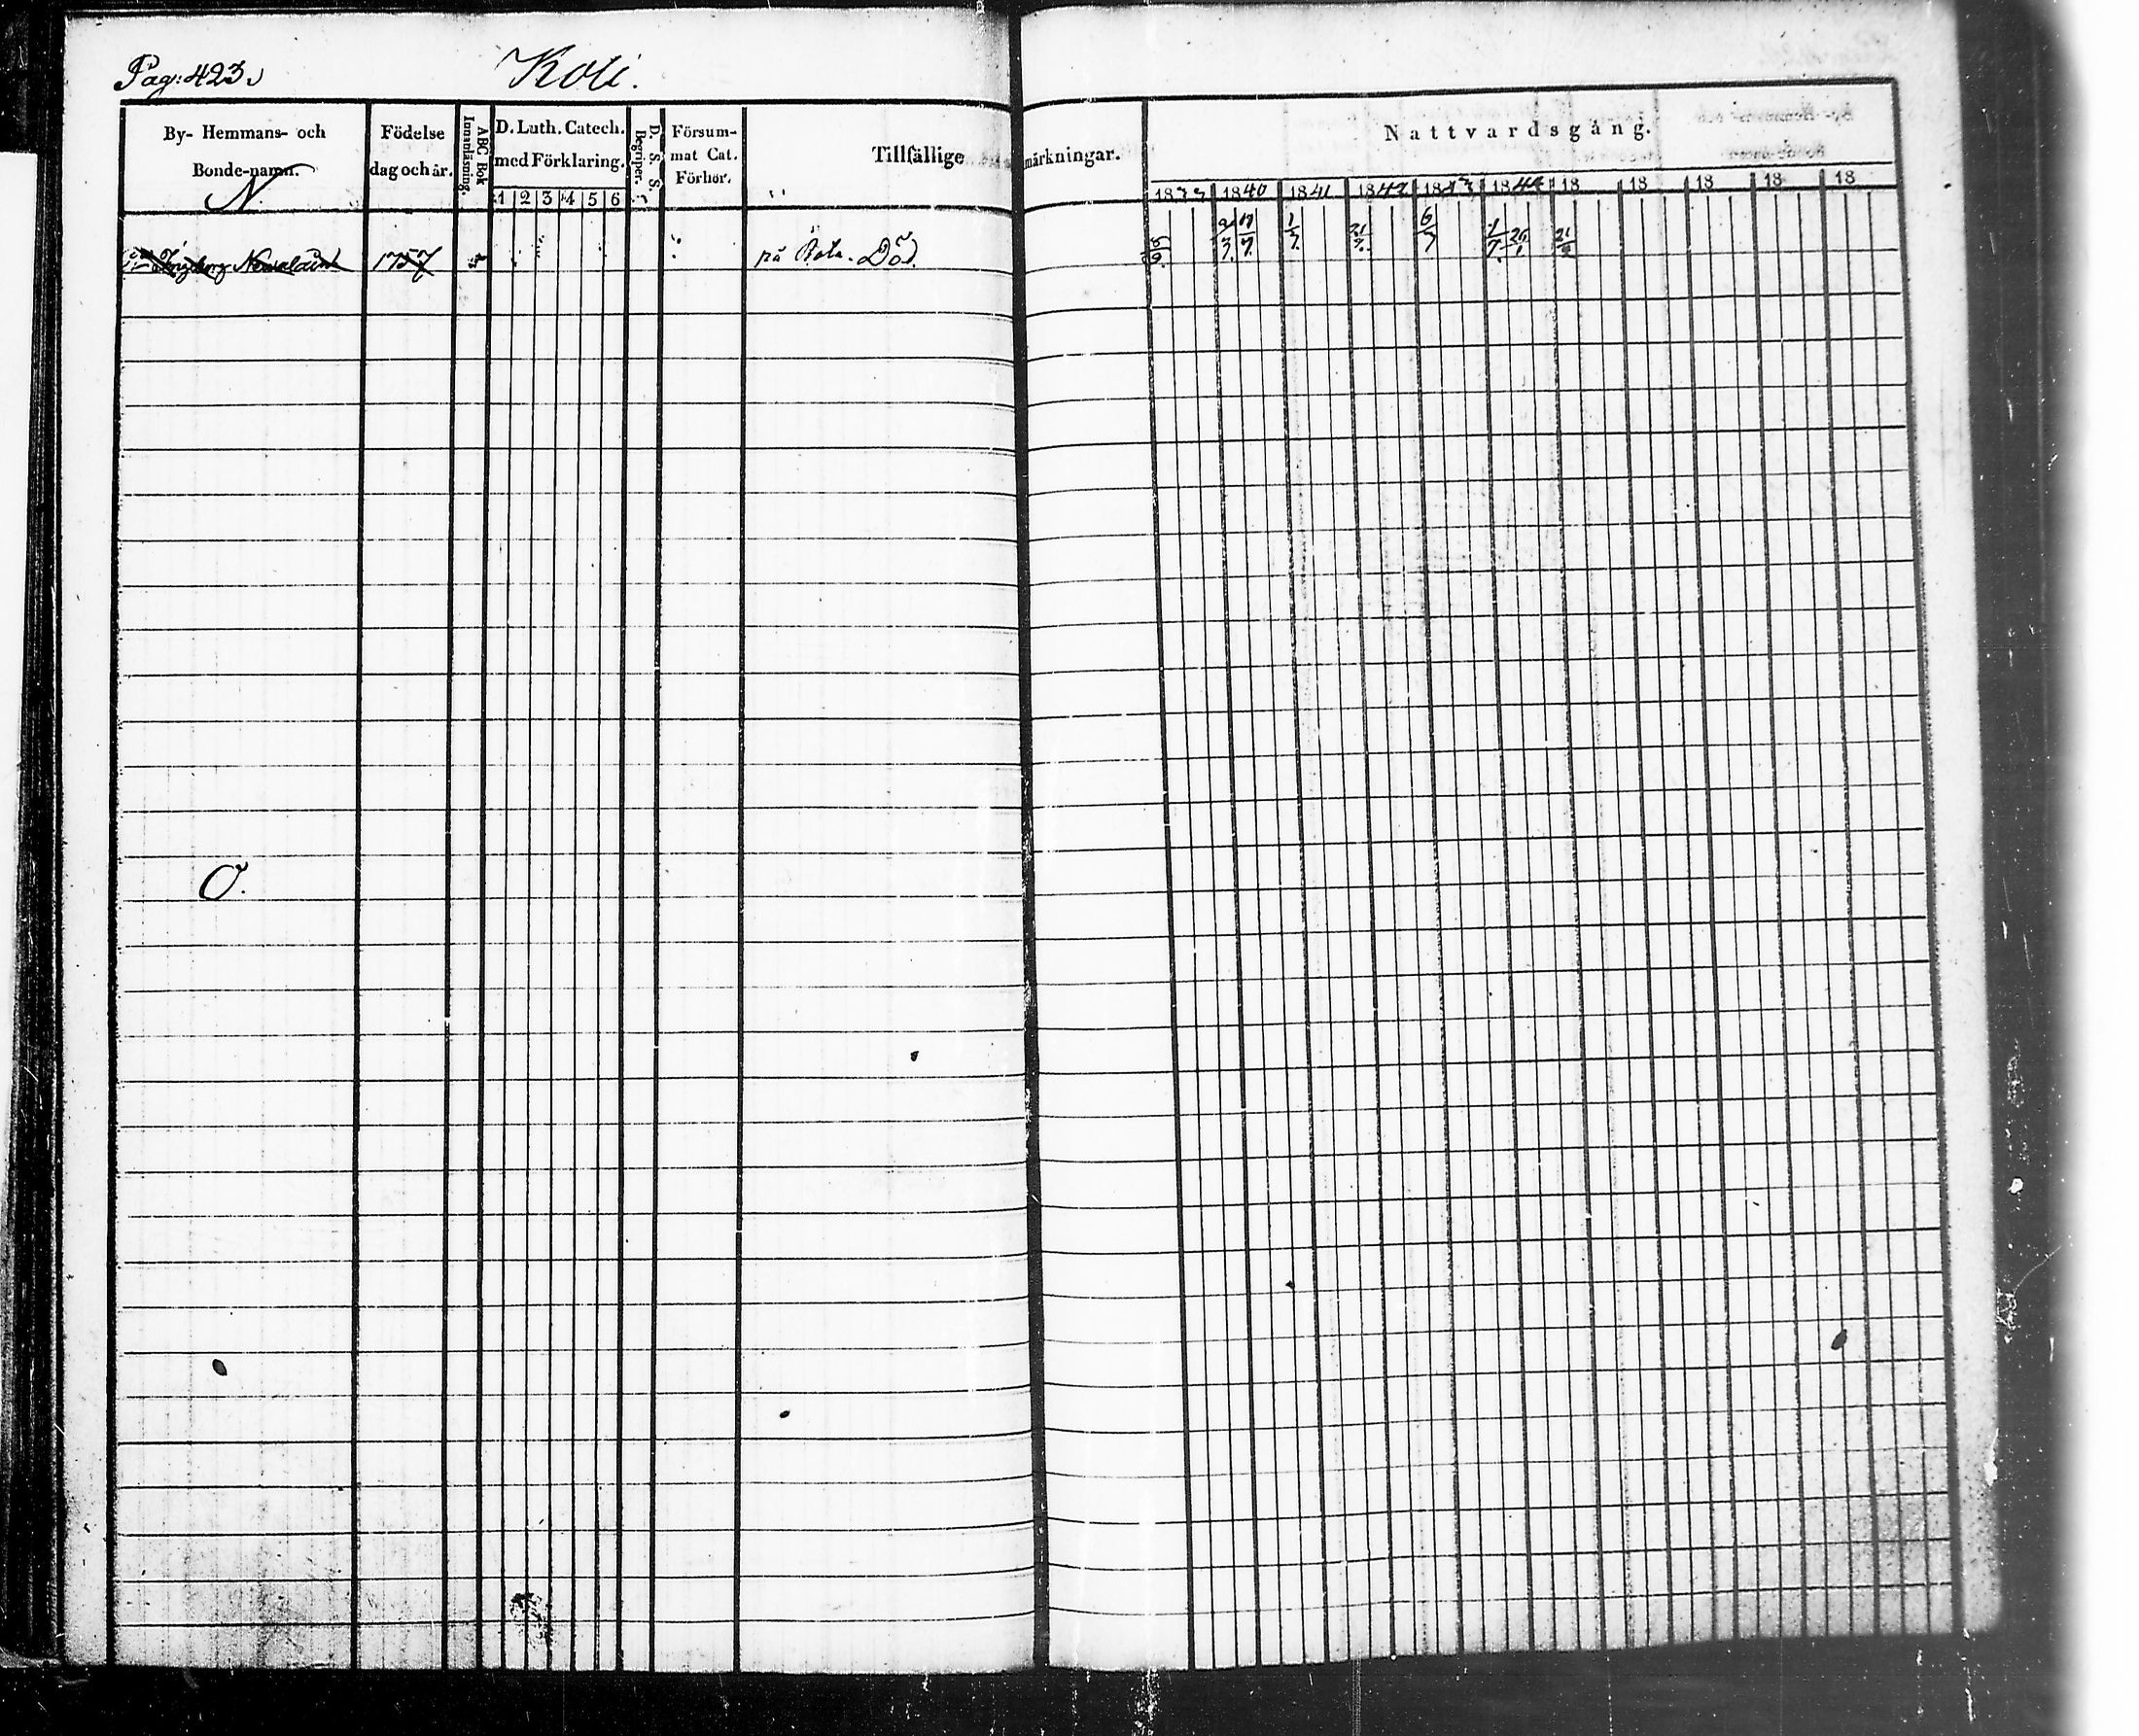 Pag: 423.
Koli.
By- Hemmans- och
Bonde-namn.
N.
Födelse
dag och år.
ABC Bok
Innanläsning.
D. Luth. Catech.
med Förklaring.
1 2 3 4 5 6
D. S. S.
Begriper.
Försum-
mat Cat.
Förhör.
Tillfällige
märkningar.
Nattvardsgång.
18 1840 1841 1842 1843 1844 18 18 18 18 18
1757
på
Död.
2/7 1/7 21/7 6/7 1/7
O.